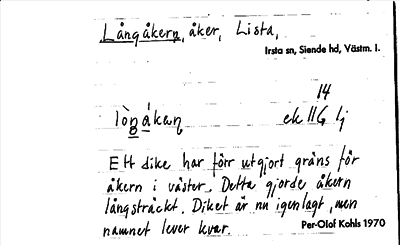 Långåkern, åker, Lista,
Irsta sn, Siende hd, Västm. l.
14
ek 11G lj
Ett dike har förr utgjort gräns för
åkern i väster. Detta gjorde åkern
långsträckt. Diket är nu igenlagt, men
namnet lever kvar. Per-Olof Kohls 1970